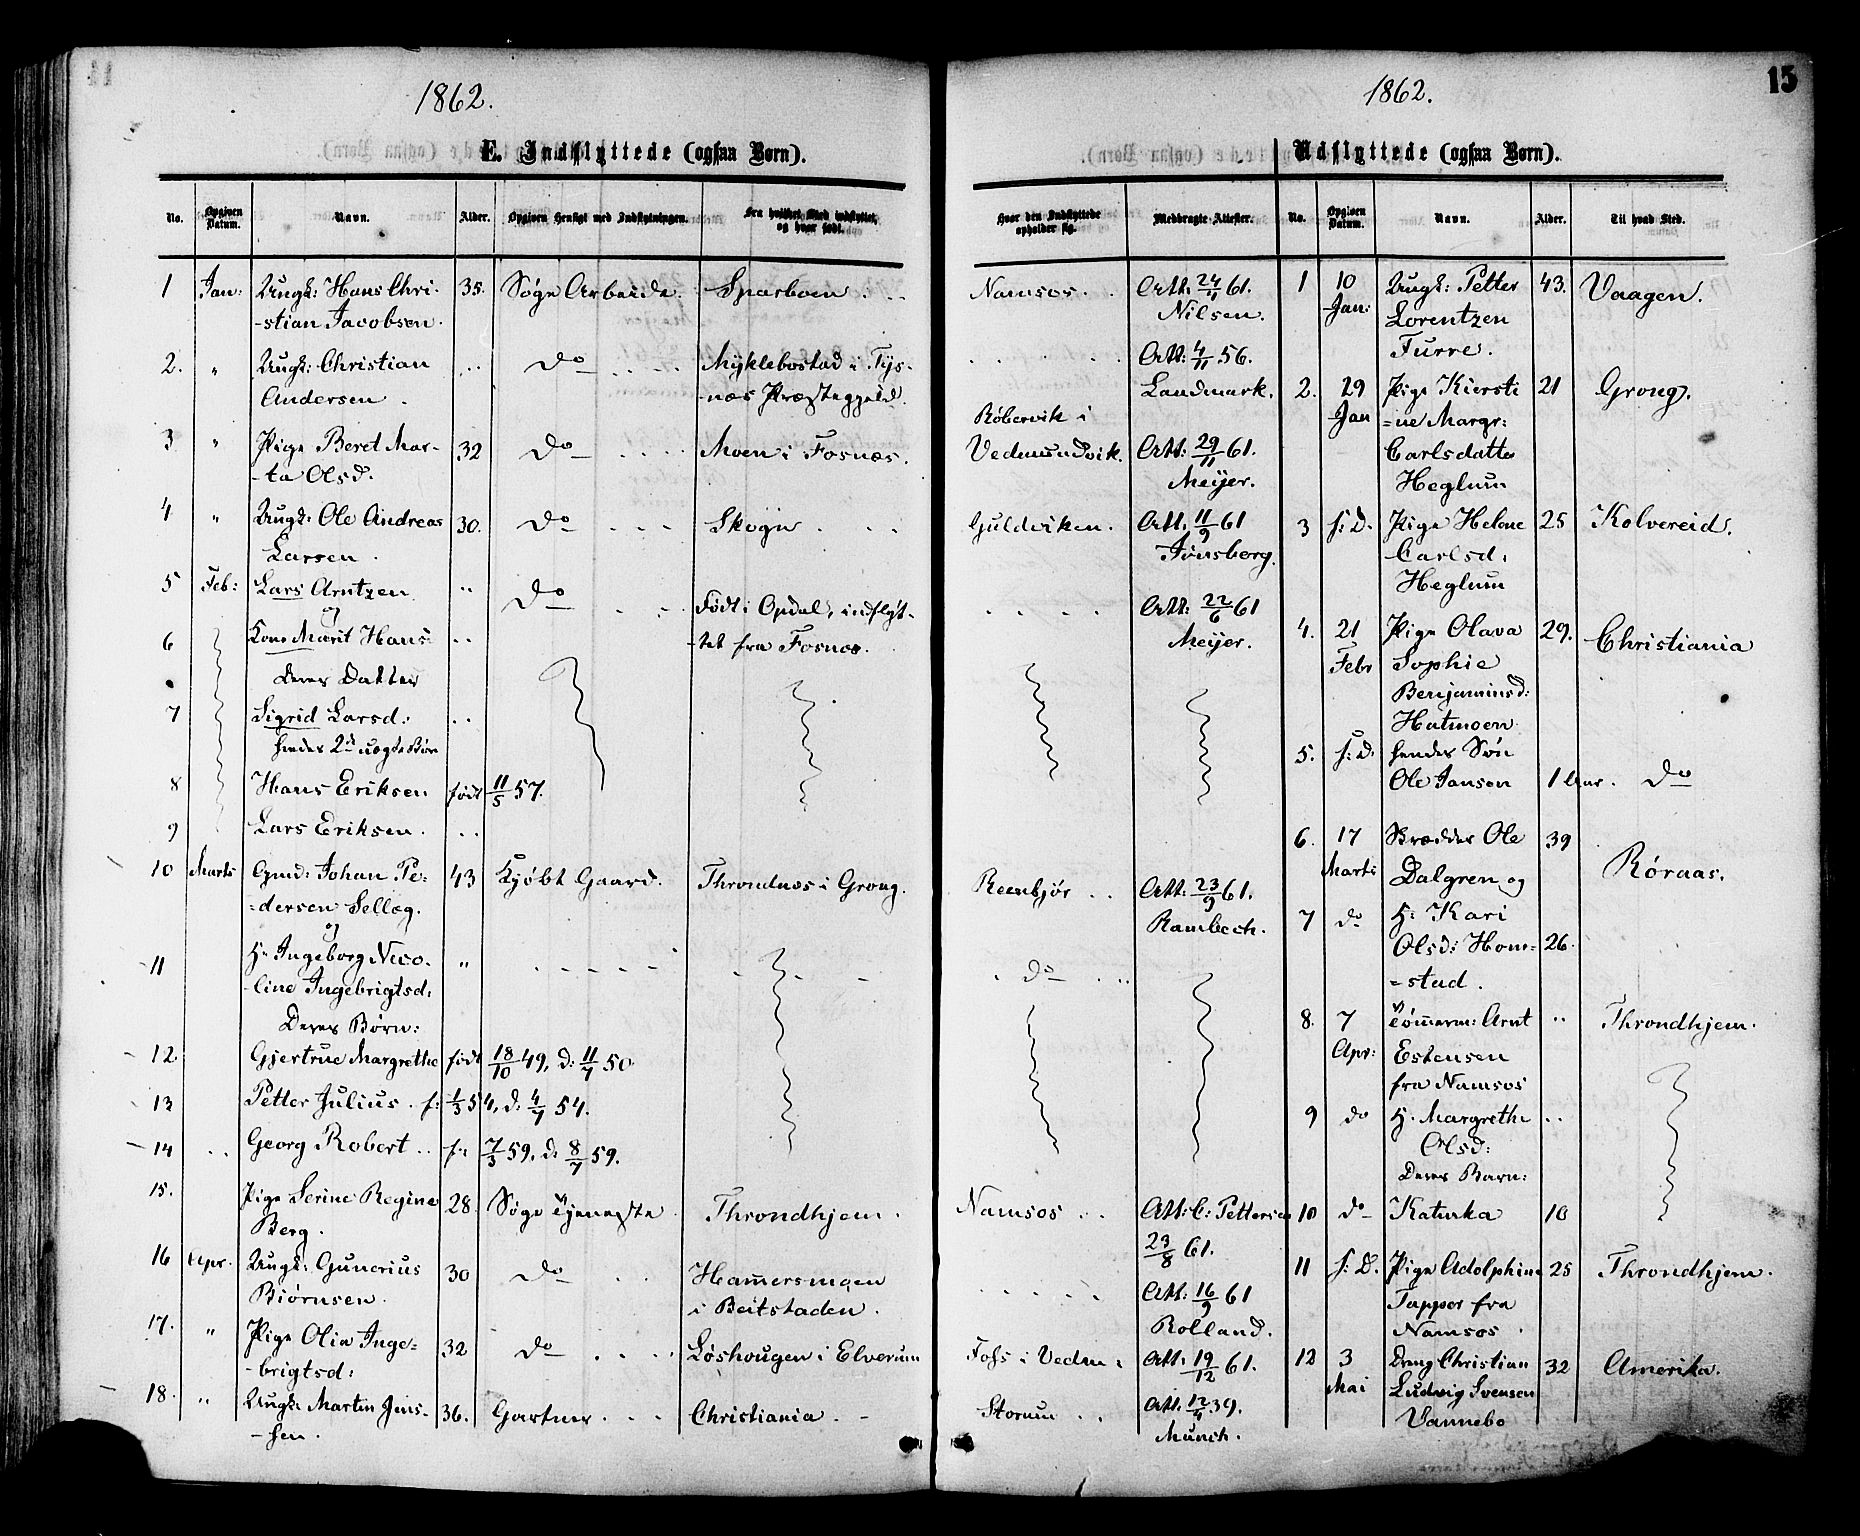 1862.
E. Indflyttede (ogsaa Børn).
No. | Opgiven Datum. | Navn. | Alder. | Opgiven Hensigt med Indflytningen. | Fra hvilket Sted indflyttet, og hvor født. | Hvor den Indflyttede opholder sig. | Medbragte Attester.
1 | Jan: | Ungk: Hans Chri- | 35. | Søge Arbeide. | Sparboen . . | Namsos. . | Att. 24/4 61.
-stian Jacobsen. | Nilsen.
2. | " | Ungk: Christian | . . . | do . . . . | Myklebostad i Tys- | . . . . | Att: 4/11 56.
Andersen . | -næs Præstegjeld. | Landmark.
3 | " | Pige Beret Mar- | 32 | do . . . . | Moen i Fosnæs. | Røbervik i
-ta Olsd. | Vedmundvik. | Att. 29/11 61.
Meijer.
4 | " | Ungk: Ole Andreas | 30. | do . . . | Skogn . . . | Guldviken. | Att. 11/9 61
Larsen . | Jønsberg.
5 | Feb: | Lars Arntzen | " | do . . . | Født i Opdal, indflyt- | . . . . | Att: 22/6 61
og
6 | Kone Marit Hans: | . . | -tet fra Fosnæs. | Meijer.
Deres Datter
7 | Sigrid Larsd: | . .
hendes 2de uægte Børn
8 | Hans Eriksen | født | 11/5 57.
9 | Lars Eriksen . | . .
10 | Marts | Gmd: Johan Pe- | 43 | Kjøbt Gaard. | Throndnæs i Grong. | Reenbjør . . | Att: 23/9 61.
-dersen Sellæg. | Rambech.
og
11 | H: Ingeborg Nico- | " | . . . . . | do
-line Ingebrigtsd:
Deres Børn:
12. | Gjertrue Margrethe | født | 18/10 49, d: 11/7 50
13 | Petter Julius . | f: | 1/3 54, d. 4/7 54.
14 | . . | Georg Robert . . | f: | 7/3 59, d: 8/7 59.
15. | Pige Serine Regine | 28. | Søge Tjeneste | Throndhjem. | Namsos . . | Att: C: Pettersen
Berg. | 23/8 61.
16 | Apr. | Ungk: Gunerius | 30 | do . . | Hammersmoen | . . . . . | Att: 16/9 61
Biørnsen. | i Beitstaden . | Rolland.
17. | " | Pige Olia Inge- | 32 | do . . . . | Løshougen i Elverum | Fofs i Vedm: | Att: 19/12 61.
-brigtsd:
18. | " | Ungk: Martin Jens- | 36. | Gartner . . . | Christiania . - | Storum . . | Att. 12/4 39.
-sen. | Munch.
15
1862.
Udflyttede (ogsaa Børn).
No. | Opgiven Datum. | Navn. | Alder. | Til hvad Sted.
1 | 10 | Ungk: Petter | 43. | Vaagen.
Jan: | Lorentzen
Furre.
2. | 29 | Pige Kiersti | 21 | Grong.
Jan | =ne Margr:
Carlsdatter
Heglum
3 | s: D. | Pige Helene | 25 | Kolvereid.
Carlsd:
Heglum
4. | 21 | Pige Olava | 29. | Christiania
Febr | Sophie
Benjaminsd:
Hatmoen
5. | s: D. | hendes Søn
Ole Jansen | 1 Aar. | do
6. | 17 | Skrædder Ole | 39
Marts | Dalgren og | Røraas.
7 | do | H: Kari
Olsd: Hom= | 26.
=stad.
8. | 7 | Tømmerm: Arnt | " | Throndhjem.
Apr: | Estensen
fra Namsos
9 | do | H. Margrethe | . .
Olsd:
Deres Barn:
10 | do | Katinka | 10
11 | s: D. | Pige Adolphine | 25 | Throndhjem.
Tapper fra
Namsos .
12 | 3 | Dreng Christian | 32 | Amerika.
Mai | Ludvig Svensen
Vannebo